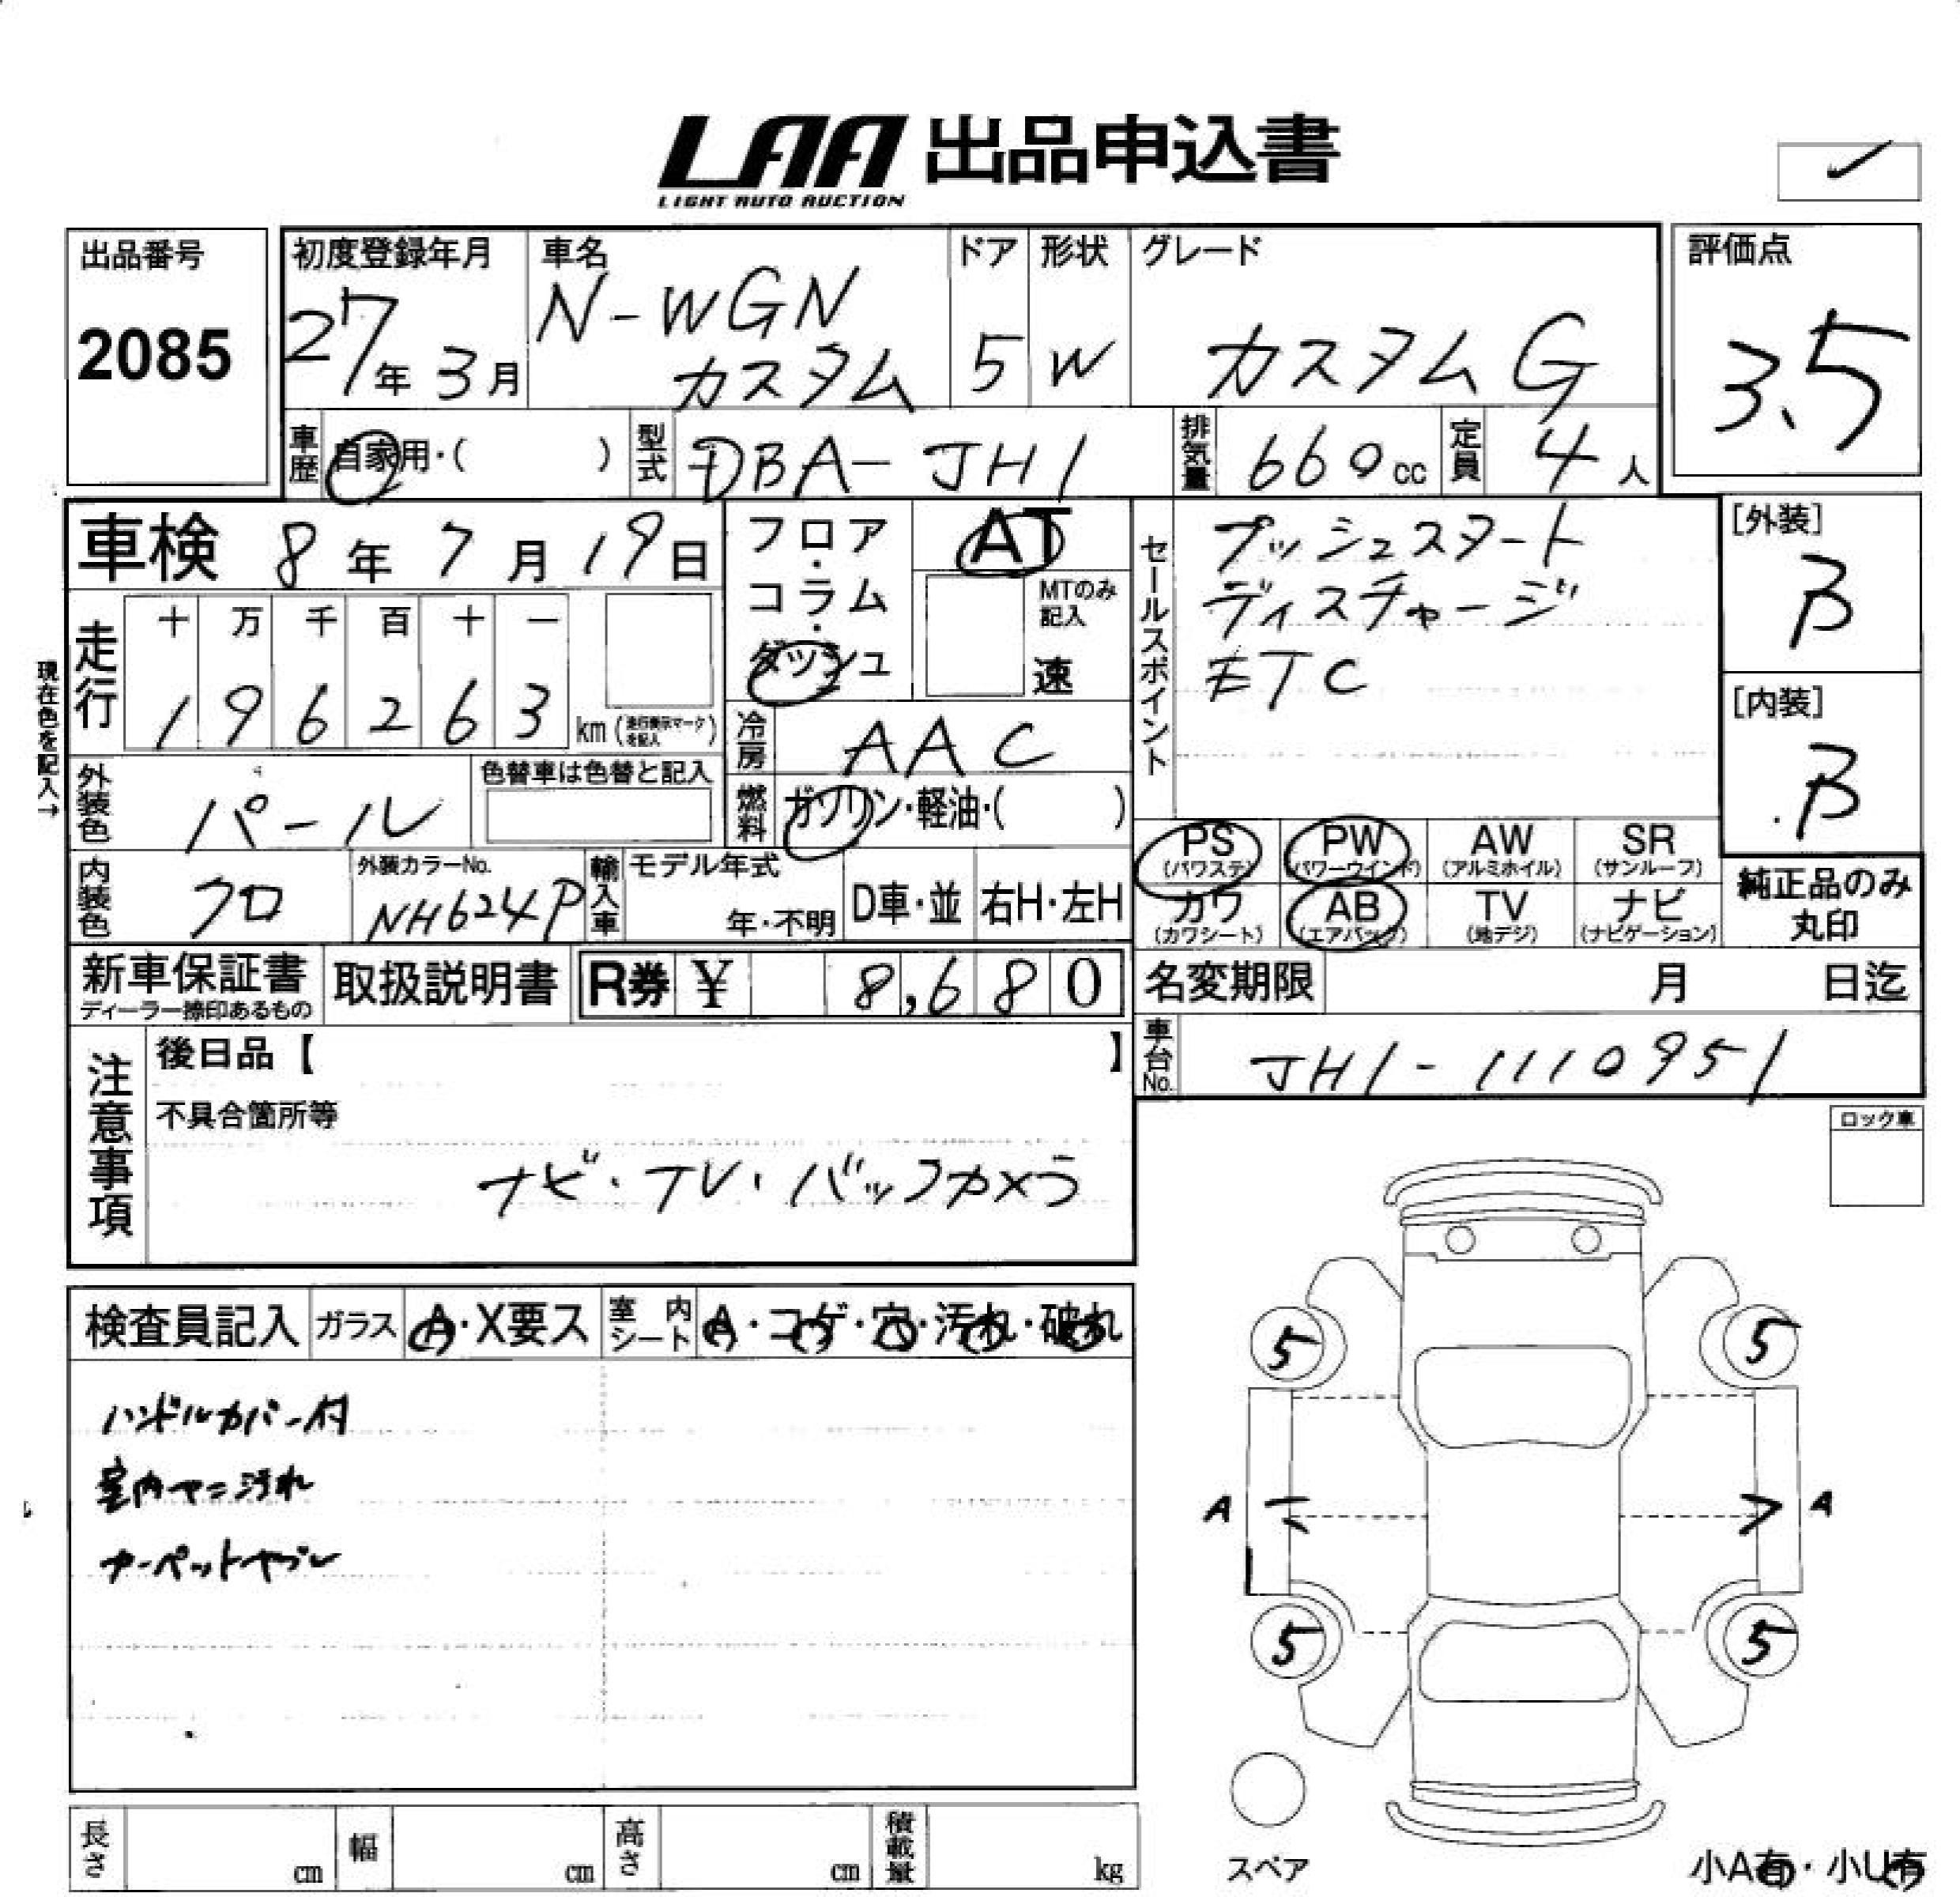 LAA 出品申込書
LIGHT AUTO AUCTION
出品番号
2085
初度登録年月
27年3月
車名
N-WGN
カスタム
ドア
5
形状
W
グレード
カスタムG
評価点
3.5
車歴
自家用・( )
型式
DBA-JH1
排気量
660cc
定員
4人
車検 8年7月19日
現在色を記入→
走行
十 万 千 百 十 一
1 9 6 2 6 3 km (走行表示マークを記入)
フロア・コラム・ダッシュ
AT
MTのみ記入
速
冷房
AAC
燃料
ガソリン・軽油・( )
セールスポイント
プッシュスタート
ディスチャージ
ETC
[外装]
B
[内装]
B
外装色
パール
色替車は色替と記入
内装色
クロ
外装カラーNo.
NH624P
輸入車
モデル年式
年・不明
D車・並
右H・左H
PS (パワステ)
PW (パワーウインド)
AW (アルミホイル)
SR (サンルーフ)
カワ (カワシート)
AB (エアバック)
TV (地デジ)
ナビ (ナビゲーション)
純正品のみ
丸印
新車保証書
ディーラー捺印あるもの
取扱説明書
R券 ¥ 8,680
名変期限 月 日迄
車台No.
JH1-1110951
注意事項
後日品【 】
不具合箇所等
ナビ・TV・バックカメラ
ロック車
検査員記入
ガラス
A・X要ス
室内シート
A・コゲ・穴・汚れ・破れ
ハンドルカバー付
室内ヤニ汚れ
カーペットヤブレ
5 5
A A
5 5
スペア
小A有・小U有
長さ cm
幅 cm
高さ cm
積載量 kg